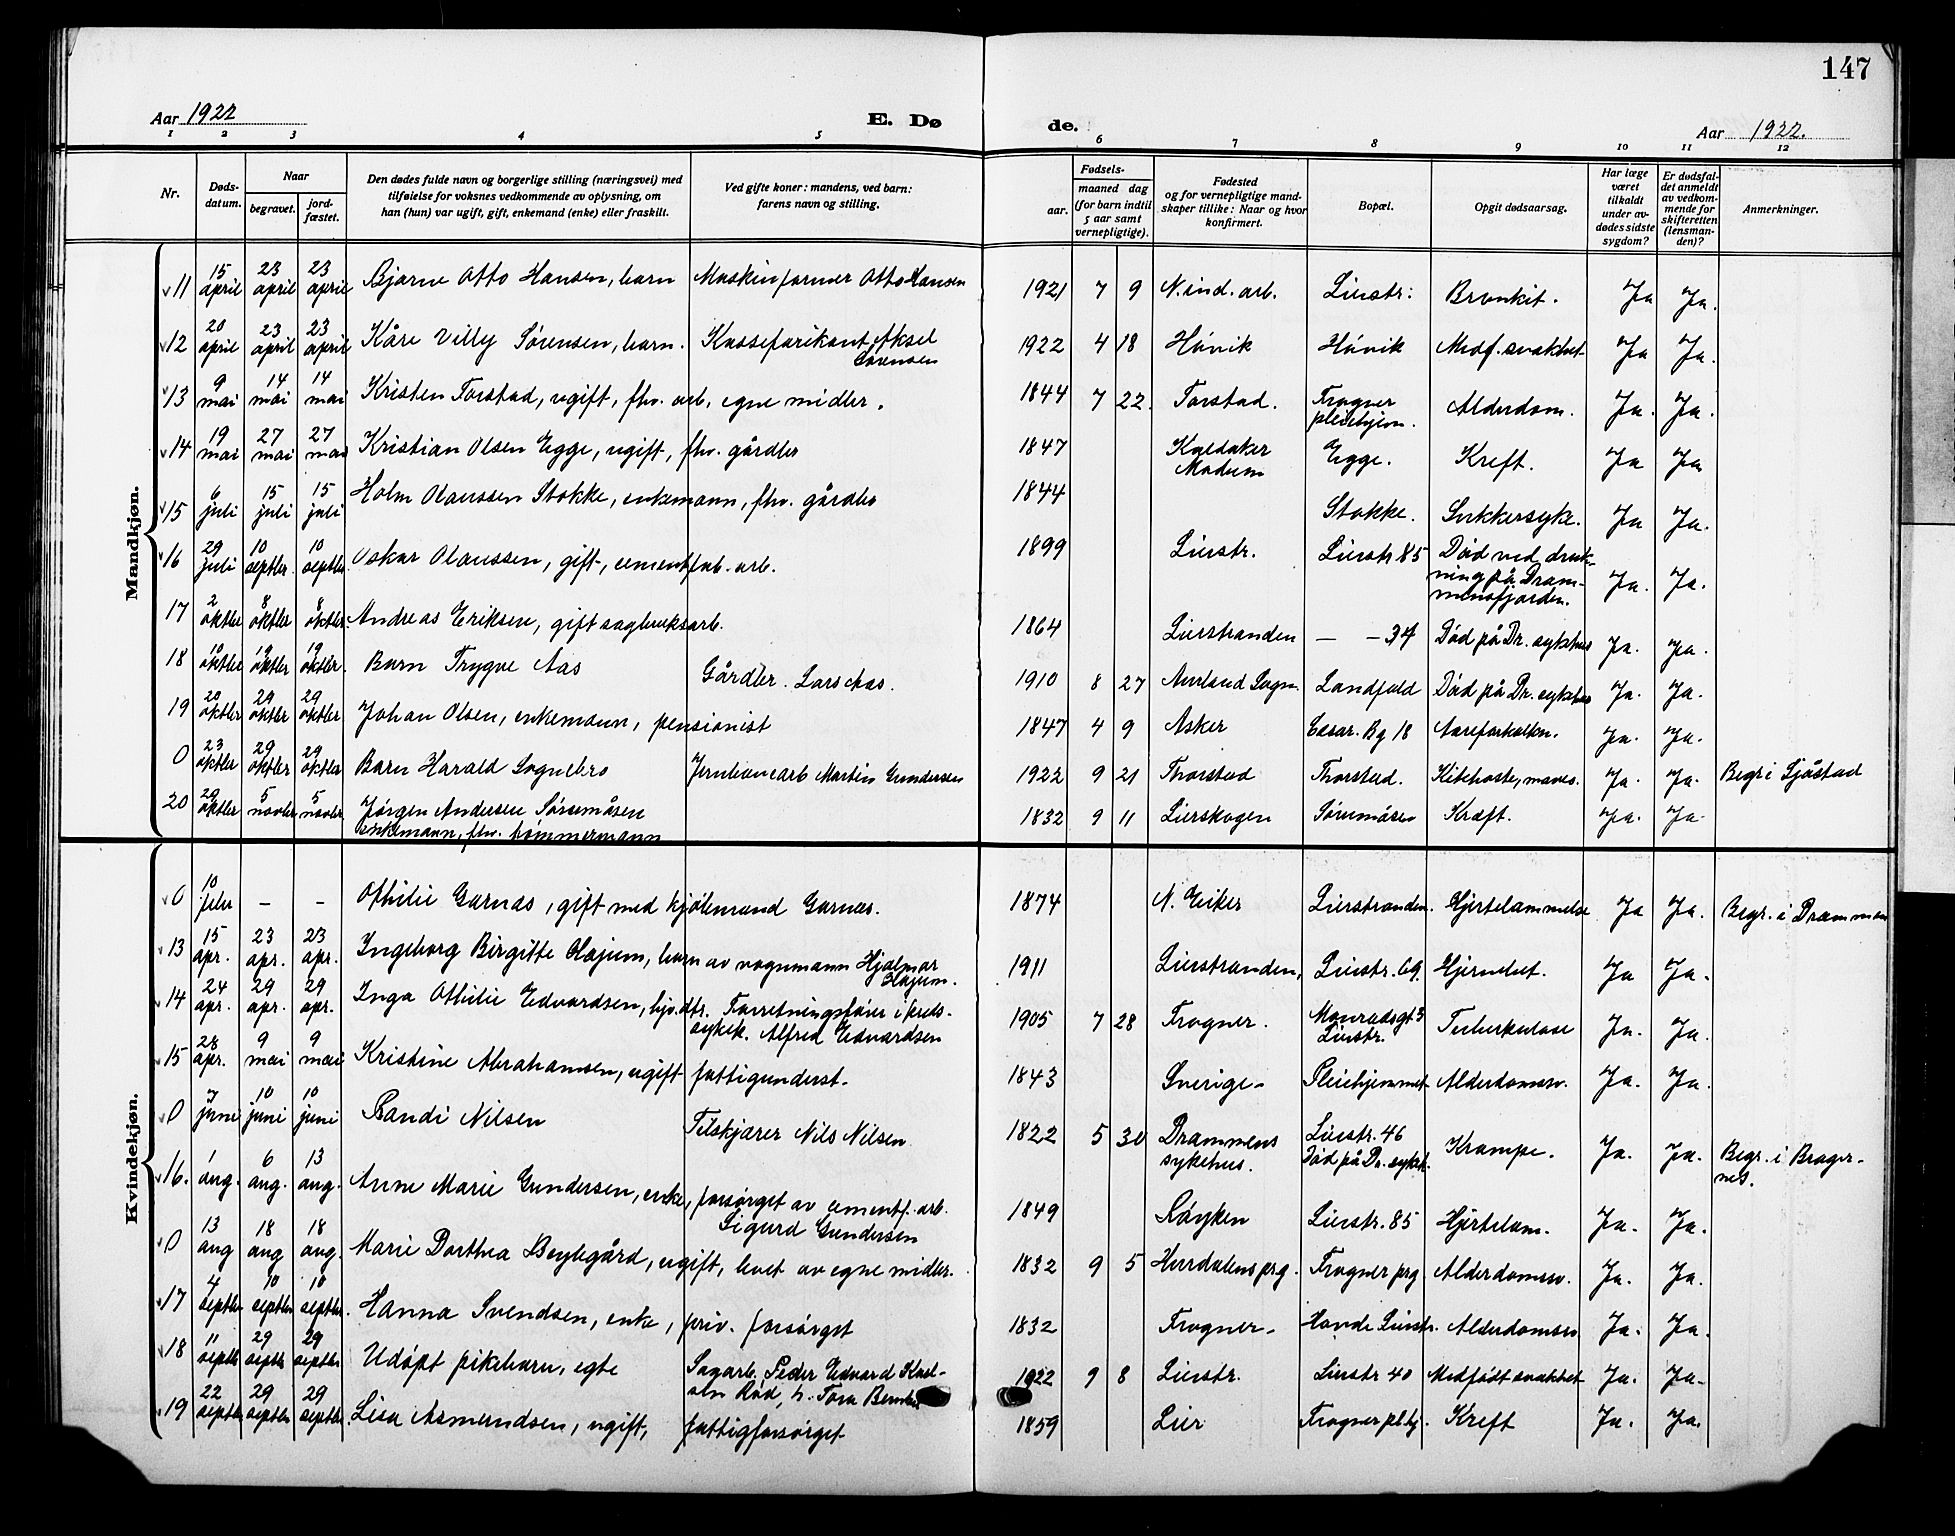 147
Aar 1922
E. Dø
de.
Aar 1922.
1 2 3 4 5 6 7 8 9 10 11 12
Nr.
Døds-
datum.
Naar
begravet.
jord-
fæstet.
Den dødes fulde navn og borgerlige stilling (næringsvei) med
tilføielse for voksnes vedkommende av oplysning, om
han (hun) var ugift, gift, enkemand (enke) eller fraskilt.
Ved gifte koner: mandens, ved barn:
farens navn og stilling.
Fødsels-
aar.
maaned dag
(for barn indtil
5 aar samt
vernepligtige).
Fødested
og for vernepligtige mand-
skaper tillike: Naar og hvor
konfirmert.
Bopæl.
Opgit dødsaarsag.
Har læge
været
tilkaldt
under av-
dødes sidste
sygdom?
Er dødsfal-
det anmeldt
av vedkom-
mende for
skifteretten
(lensman-
den)?
Anmerkninger.
Mandkjøn.
11 15 april 23 april 23 april Bjarne Otto Hansen, barn Maskinformer Otto Hansen 1921 7 9 N. ind. arb. Lierstr. Bronkit. Ja Ja.
12 20 april 23 april 23 april Kåre Villy Sørensen, barn. Kassefarikant Aksel
Sørensen 1922 4 18 Høvik Høvik Medf. svakhet Ja Ja.
13 9 mai 14 mai 14 mai Kristen Torstad, ugift, fhv. arb. egne midler. 1844 7 22. Torstad. Frogner
pleiehjem. Alderdom. Ja. Ja.
14 19 mai 27 mai 27 mai Kristian Olsen Egge, ugift, fhv. gårdbr 1847 Modum Egge. Kreft. Ja Ja
15 6 juli 15 juli 15 juli Holm Olaussen Stokke, enkemann, fhv. gårdbr 1844 Stokke. Sukkersyke. Ja Ja.
16 29 juli 10 septbr. 10 septbr. Oskar Olaussen, gift, cementfab. arb. 1899 Lierstr. Lierstr. 85 Død ved druk-
ning på Dram-
mensfjorden. Ja. Ja.
17 2 oktbr 8 oktbr 8 oktbr. Andreas Eriksen, gift sagbruksarb. 1864 Lierstranden — — 34 Død på Dr. sykehus Ja. Ja.
18 oktbr 19 oktbr 19 oktbr. Barn Trygve Aas Gårdbr. Lars Aas. 1910 8 27 Aurland Sogn. Landfald Død på Dr. sykehus Ja. Ja.
19 20 oktbr 29 oktbr 29 oktbr Johan Olsen, enkemann, pensionist 1847 4 9 Asker Cæsar. Bg 18 Aareforkalkn. Ja. Ja.
0 23 oktbr 29 oktbr 29 oktbr Barn Harald Sognebro Jernbanearb Martin Gundersen 1922 9 21 Thorstad Thorstad. Kikhoste, maves. Ja. Ja. Begr. i Sjåstad
20 29 oktbr 5 novbr 5 novbr Jørgen Andersen Sørumåsen
enkemann, fhv. tømmermann 1832 9 11 Lierskogen Sørumåsen Kræft. Ja. Ja.
Kvindekjøn.
0 10 febr — — Othilie Garnæs, gift med kjøbmand Garnæs. 1874 N. Eiker Lierstranden. Hjertelammelse Ja Ja. Begr. i Drammen
13 15 apr. 23 apr. 23 apr. Ingeborg Birgitte Olajum, barn av vognmann Hjalmar
Olajum. 1911 Lierstranden, Lierstr. 69. Hjernebet. Ja Ja.
14 24 apr. 29 apr. 29 apr. Inga Othilie Edvardsen, hjv. dtr. Forretningsfører i kreds-
sykek. Alfred Edvardsen 1905 7 28 Frogner. Monradsgt 3
Lierstr. Tuberkulose Ja. Ja.
15 28 apr. 9 mai 9 mai Kristine Abrahamsen, ugift fattigunderst. 1843 Sverige. Pleiehjemmet Alderdomssv. Ja. Ja.
0 7 juni 10 juni 10 juni Randi Nilsen Filskjærer Nils Nilsen. 1822 5 30 Drammens
sykehus. Lierstr. 46
Død på Dr. sykeh. Krampe. Ja. Ja. Begr. i Brager-
nes.
16. 1 aug. 6 aug. 13 aug. Anne Marie Gundersen, enke, forsørget av cementf. arb.
Sigurd Gundersen 1849 Røyken Lierstr. 85 Hjertelam. Ja. Ja.
0 13 aug 18 aug 18 aug. Marie Dorthea Beylegård, ugift, levet av egne midler. 1832 9 5 Hurdalens prg. Frogner prg. Alderdomssv. Ja. Ja.
17 4 septbr 10 septbr 10 septbr. Hanna Svendsen, enke, priv. forsørget 1832 Frogner. Lierstr. Alderdomssv Ja. Ja.
18 11 septbr 29 septbr 29 septbr Udøpt pikebarn, egte Sagarb. Peder Edvard Karl-
sen Rød, h. Tora 1922 9 8 Lierstr. Lierstr 40 Medfødt svakhet Ja. Ja.
19 22 septbr 29 septbr 29 septbr Lisa Asmundsen, ugift, fattigforsørget 1859 Lier Frogner pl.hj. Kreft Ja. Ja.